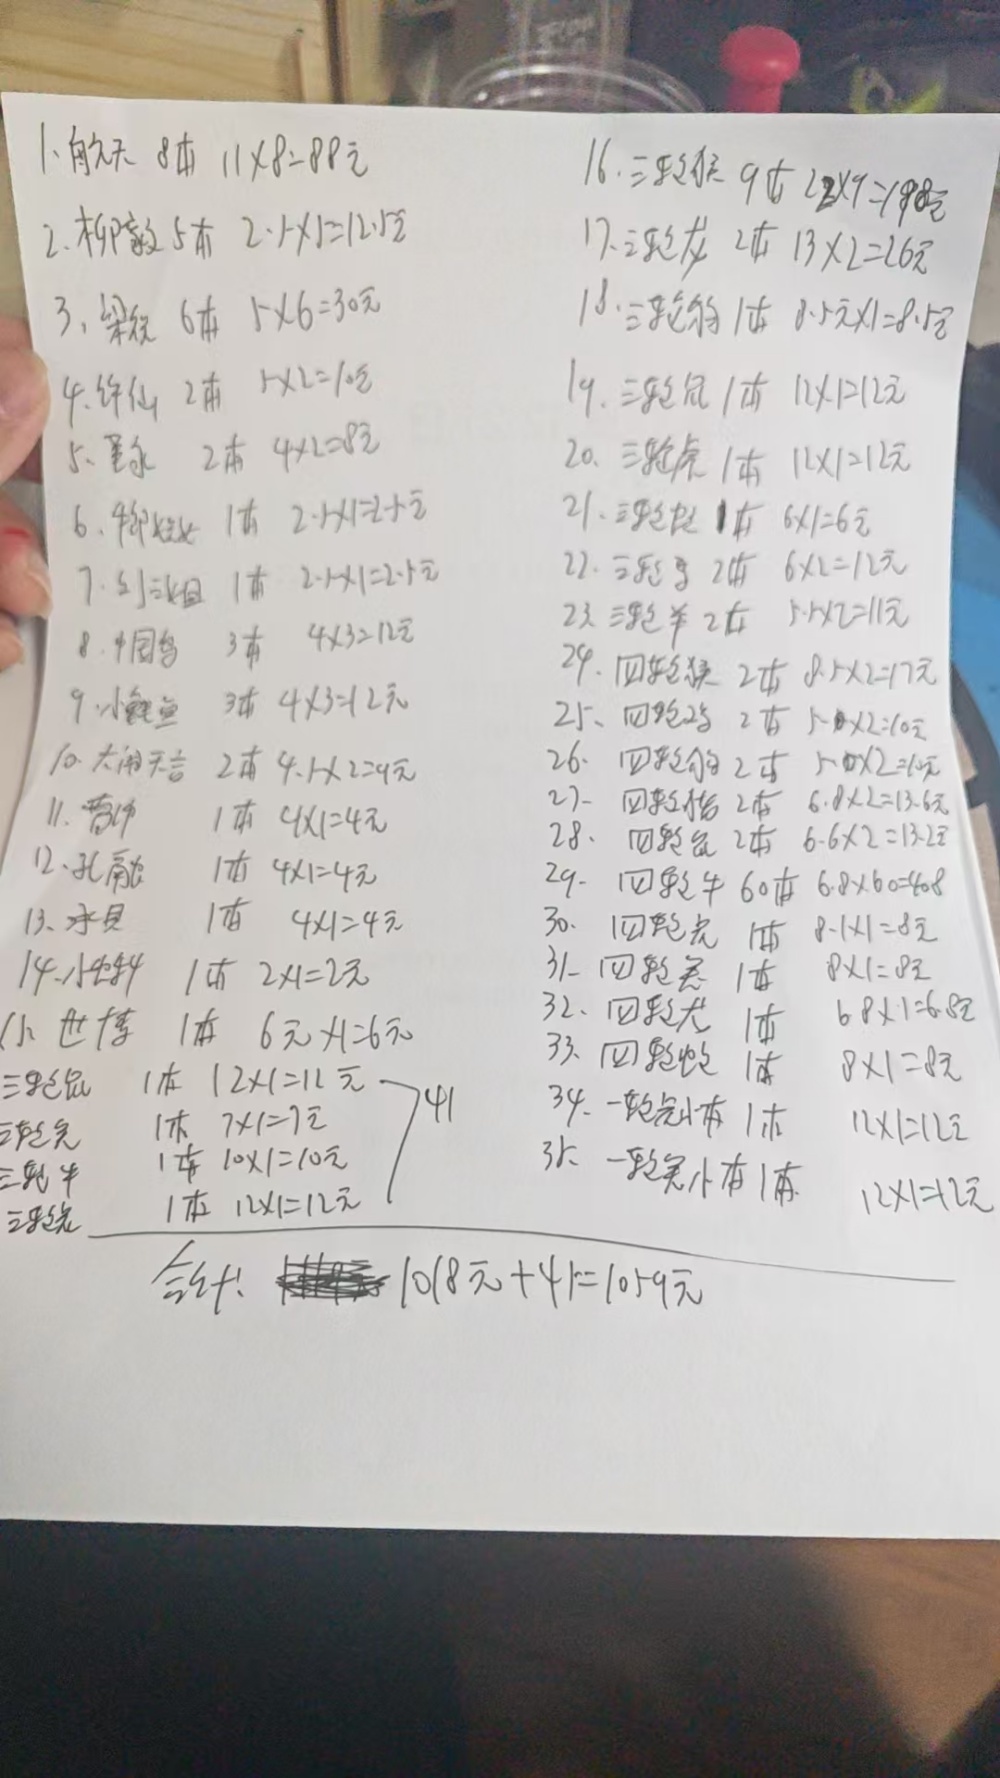 1、航天 8本 11×8=88元
2.柳毅 5本 2.5×5=12.5元
3、梁祝 6本 5×6=30元
4.许仙 2本 5×2=10元
5、董永 2本 4×2=8元
6. 1本 2.5×1=2.5元
7.刘三姐 1本 2.5×1=2.5元
8.中国鸟 3本 4×3=12元
9.小鲤鱼 3本 4×3=12元
10.大闹天宫 2本 4.5×2=9元
11.曹冲 1本 4×1=4元
12.孔融 1本 4×1=4元
13、 1本 4×1=4元
14.小蝌蚪 1本 2×1=2元
15 世博 1本 6元×1=6元
三轮鼠 1本 12×1=12元
三轮 1本 7×1=7元
三轮牛 1本 10×1=10元
三轮 1本 12×1=12元
41
16.三轮猴 9本 22×9=198元
17.三轮龙 2本 13×2=26元
18.三轮狗 1本 8.5元×1=8.5元
19.三轮鼠 1本 12×1=12元
20.三轮虎 1本 12×1=12元
21.三轮蛇 1本 6×1=6元
22.三轮马 2本 6×2=12元
23.三轮羊 2本 5.5×2=11元
24.四轮猴 2本 8.5×2=17元
25、四轮鸡 2本 5×2=10元
26.四轮狗 2本 5×2=10元
27.四轮猪 2本 6.8×2=13.6元
28.四轮鼠 2本 6.6×2=13.2元
29.四轮牛 60本 6.8×60=408
30.四轮虎 1本 8.1×1=8元
31.四轮 1本 8×1=8元
32.四轮龙 1本 6.8×1=6.8元
33.四轮蛇 1本 8×1=8元
34.一轮 小本 1本 12×1=12元
35.一轮 小本 1本 12×1=12元
合计: 1018元+41=1059元